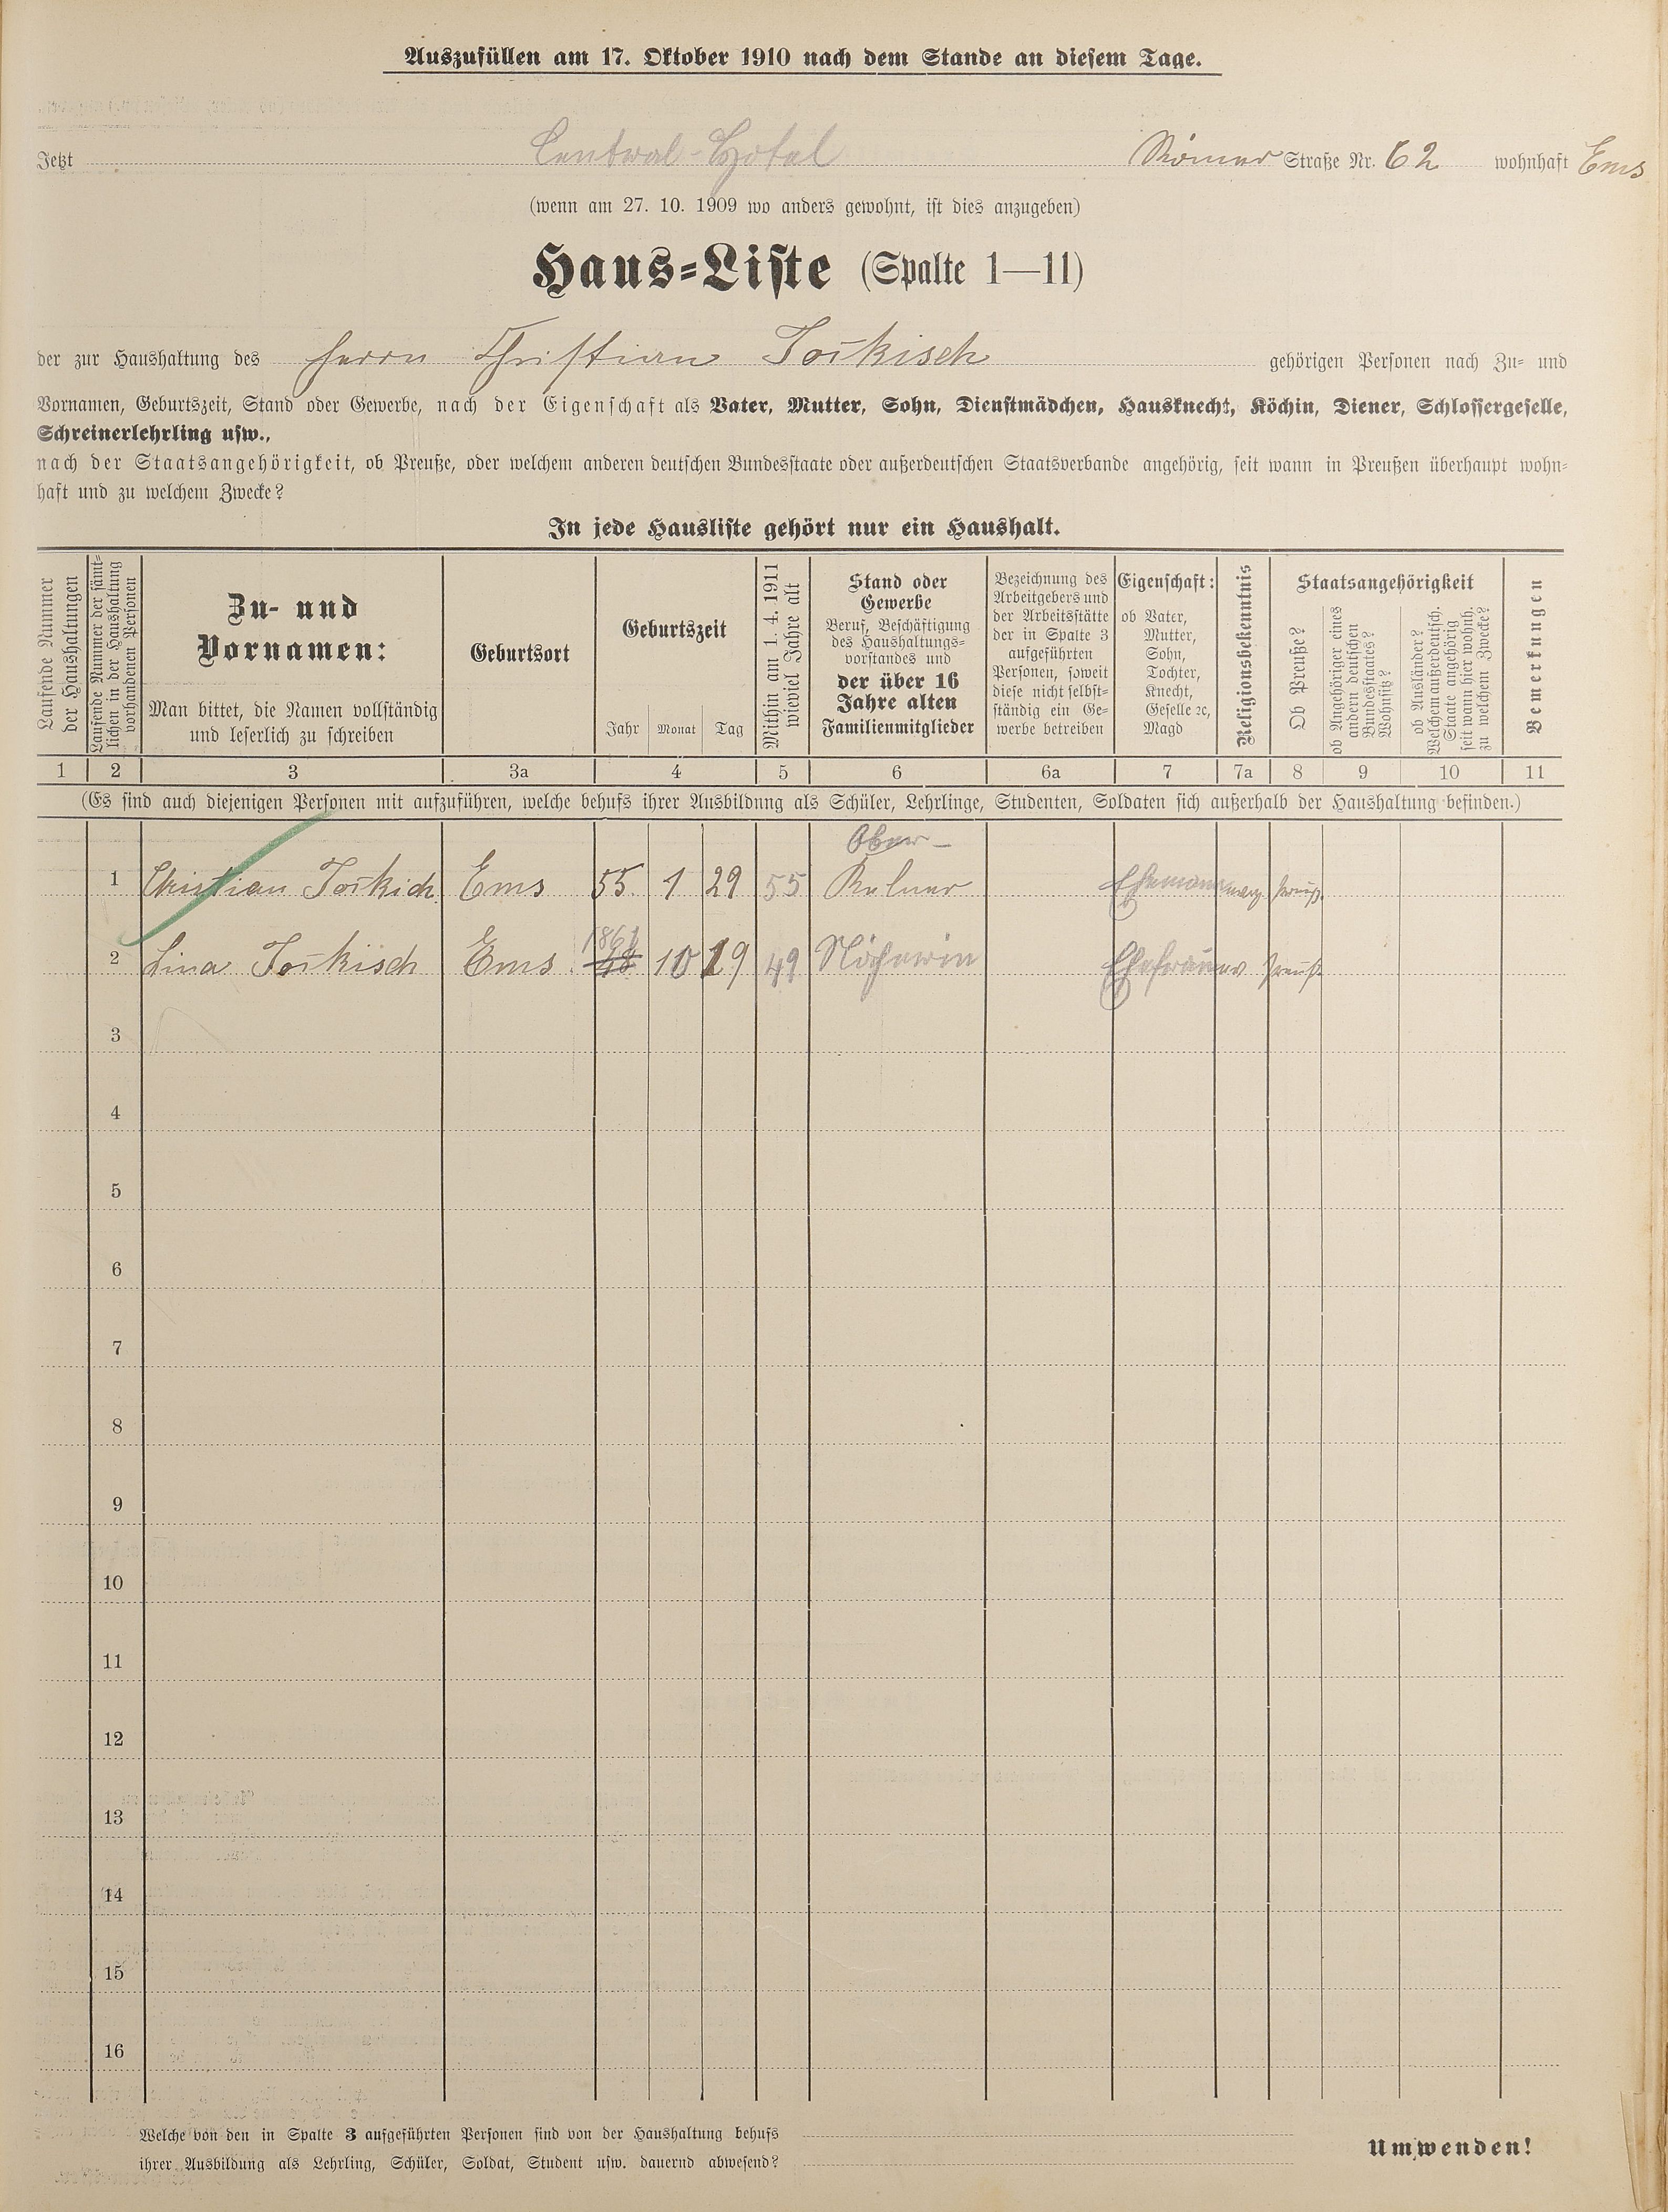 Auszufüllen am 17. Oktober 1910 nach dem Stande an diesem Tage.
Jetzt Central-Hotel Römer Straße Nr. 62 wohnhaft Ems
(wenn am 27. 10. 1909 wo anders gewohnt, ist dies anzugeben)
Haus=Liste (Spalte 1—11)
der zur Haushaltung des Herrn Christian gehörigen Personen nach Zu= und
Vornamen, Geburtszeit, Stand oder Gewerbe, nach der Eigenschaft als Vater, Mutter, Sohn, Dienstmädchen, Hausknecht, Köchin, Diener, Schlossergeselle,
Schreinerlehrling usw.,
nach der Staatsangehörigkeit, ob Preuße, oder welchem anderen deutschen Bundesstaate oder außerdeutschen Staatsverbande angehörig, seit wann in Preußen überhaupt wohn=
haft und zu welchem Zwecke?
In jede Hausliste gehört nur ein Haushalt.
Laufende Nummer
der Haushaltungen
Laufende Nummer der sämt=
lichen in der Haushaltung
vorhandenen Personen
Zu- und
Vornamen:
Man bittet, die Namen vollständig
und leserlich zu schreiben
Geburtsort
Geburtszeit
Jahr Monat Tag
Mithin am 1. 4. 1911
wieviel Jahre alt
Stand oder
Gewerbe
Beruf, Beschäftigung
des Haushaltungs=
vorstandes und
der über 16
Jahre alten
Familienmitglieder
Bezeichnung des
Arbeitgebers und
der Arbeitsstätte
der in Spalte 3
aufgeführten
Personen, soweit
diese nicht selbst=
ständig ein Ge=
werbe betreiben
Eigenschaft:
ob Vater,
Mutter,
Sohn,
Tochter,
Knecht,
Geselle ꝛc,
Magd
Religionsbekenntnis
Staatsangehörigkeit
Ob Preuße?
ob Angehöriger eines
andern deutschen
Bundesstaates?
Wohnsitz?
ob Ausländer?
Welchem außerdeutsch.
Staate angehörig
seit wann hier wohnh.
zu welchem Zwecke?
Bemerkungen
1 2 3 3a 4 5 6 6a 7 7a 8 9 10 11
(Es sind auch diejenigen Personen mit aufzuführen, welche behufs ihrer Ausbildung als Schüler, Lehrlinge, Studenten, Soldaten sich außerhalb der Haushaltung befinden.)
Ober-
1 Christian Ems 55. 1 29 55 Kelner Ehemann evg. preuß.
1861
2 Lina Ems 48 10 19 49 Näherin Ehefrau ev preuß
3
4
5
6
7
8
9
10
11
12
13
14
15
16
Welche von den in Spalte 3 aufgeführten Personen sind von der Haushaltung behufs
ihrer Ausbildung als Lehrling, Schüler, Soldat, Student usw. dauernd abwesend?
Umwenden!